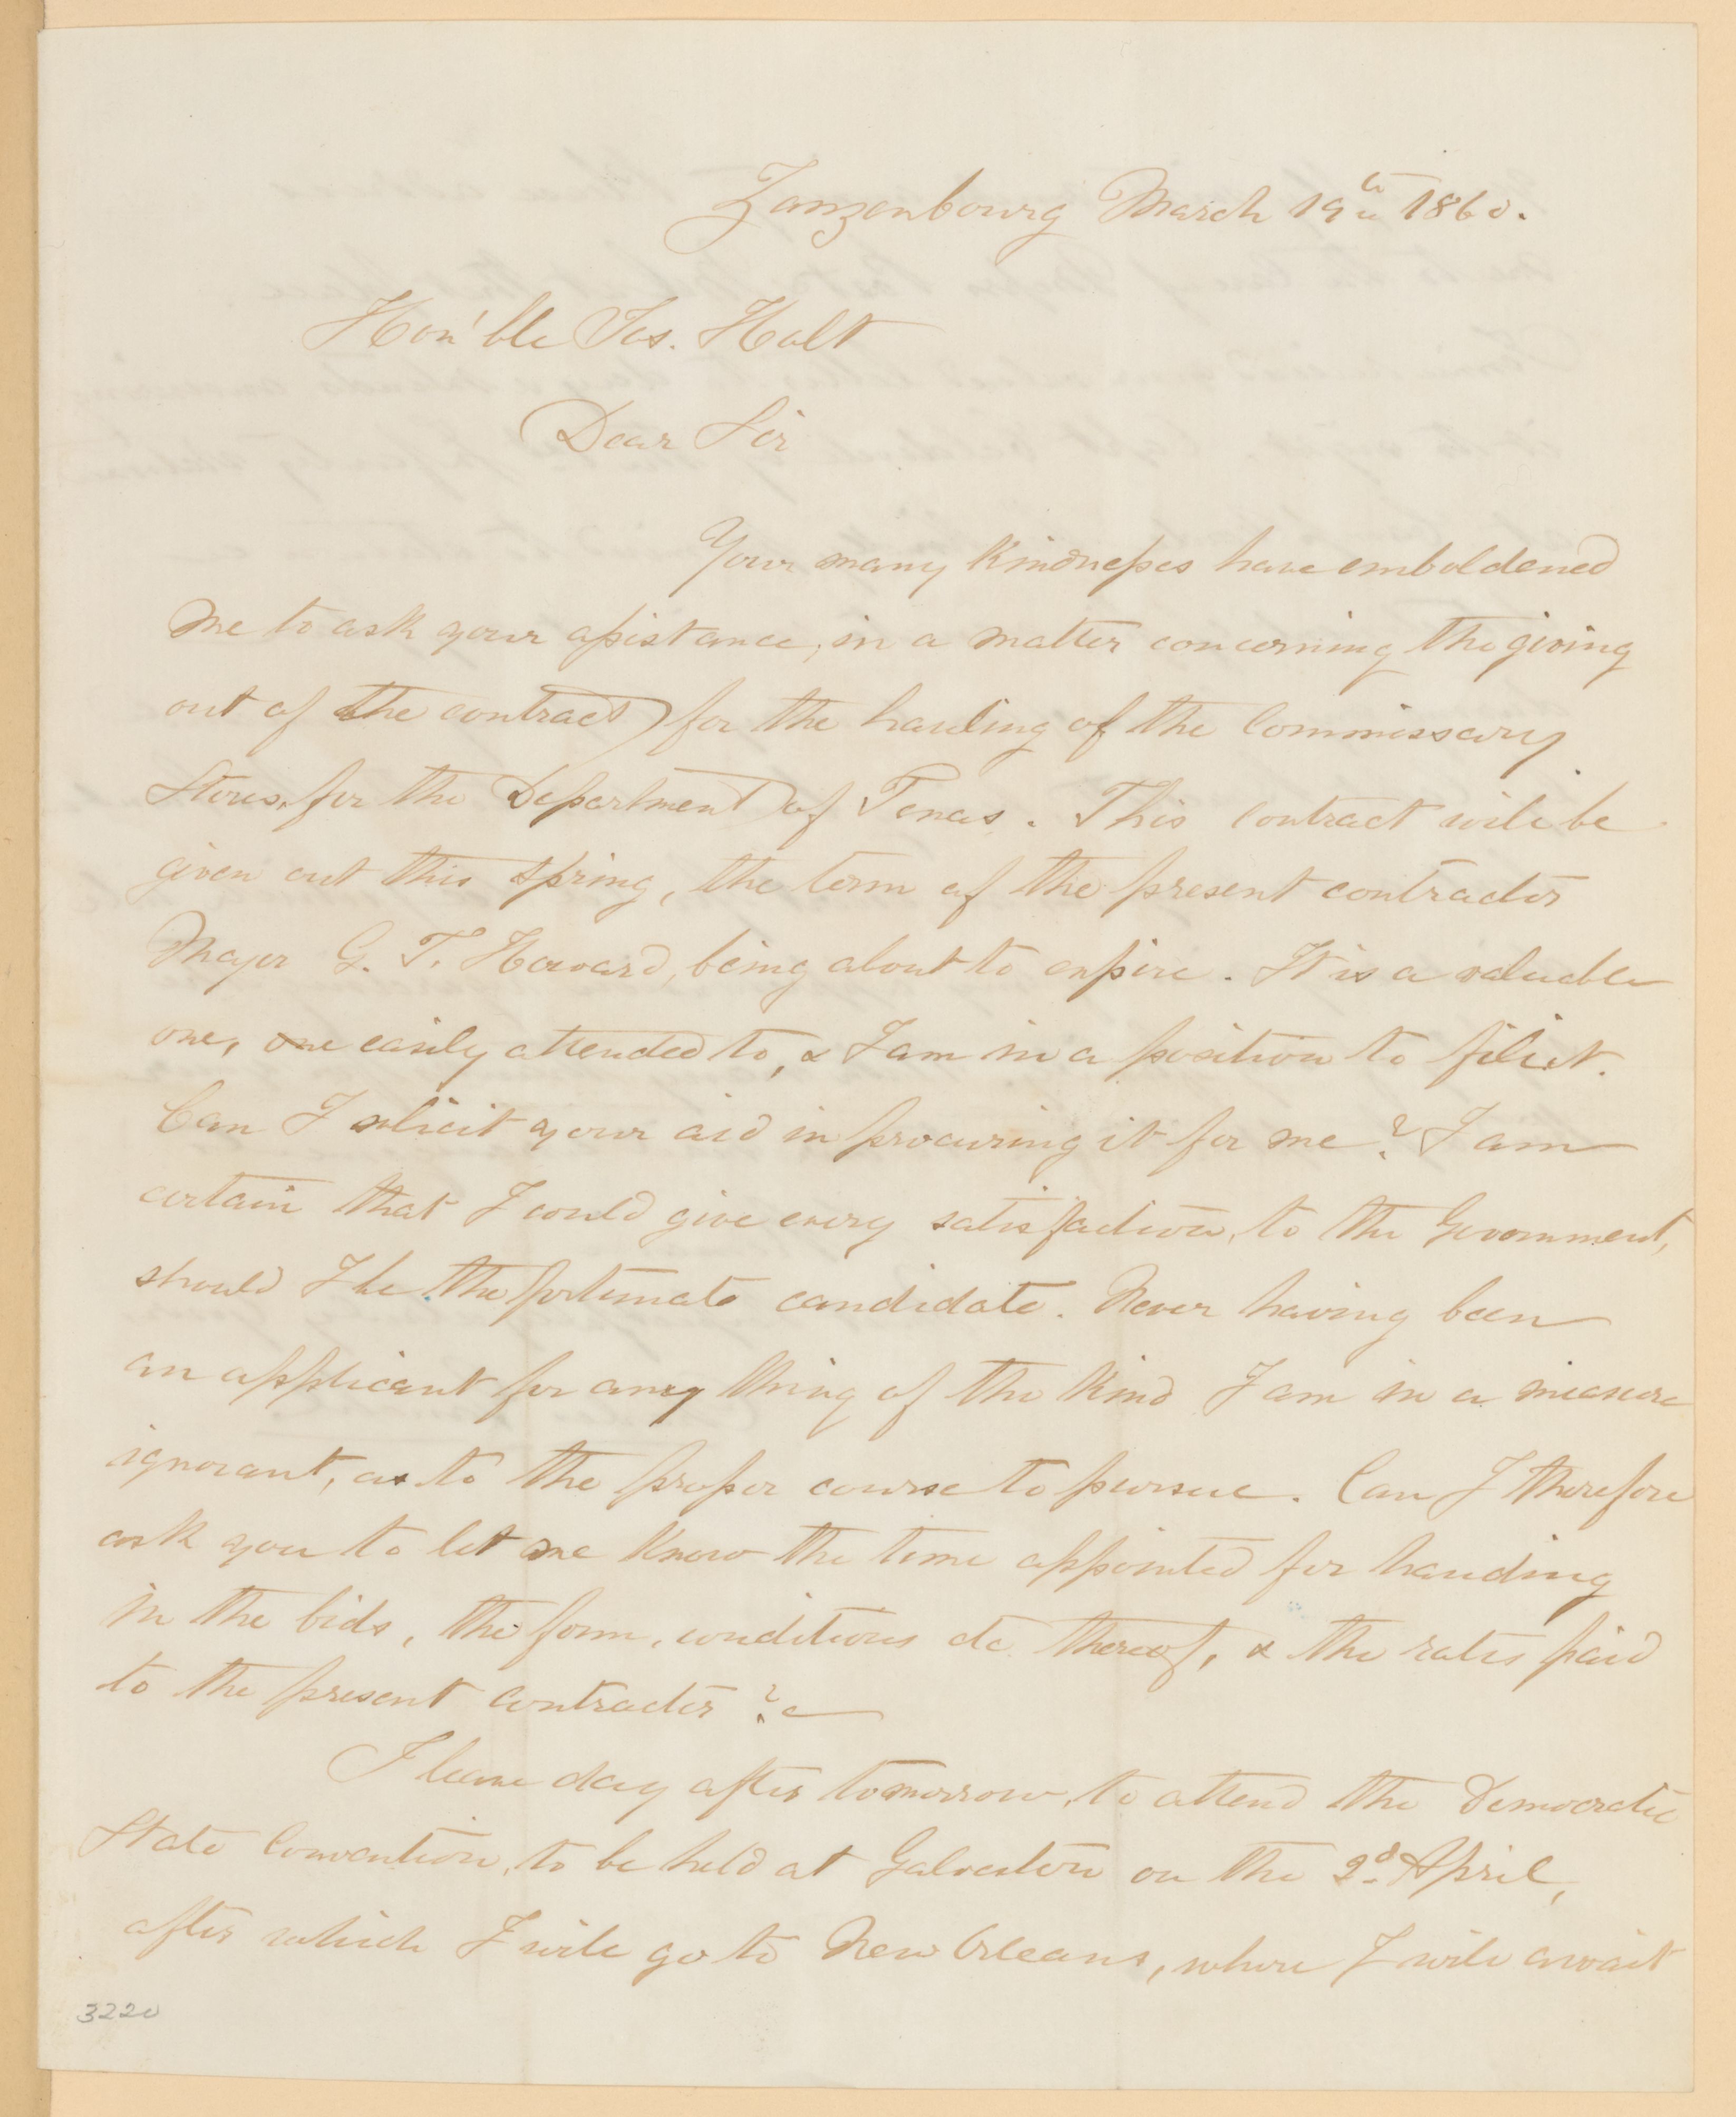 Zanzenbourg March 19th 1860.
Hon'ble Jos. Holt
Dear Sir
Your many kindnesses have emboldened
me to ask your assistance, in a matter concerning the giving
out of the contract for the hauling of the Commissary
Stores, for the Department of Texas. This contract will be
given out this spring, the term of the present contractor
Major G. T. Howard, being about to expire. It is a valuable
one, one easily attended to, & I am in a position to fill it.
Can I solicit your aid in procuring it for me? I am
certain that I could give every satisfaction, to the Government,
should I be the fortunate candidate. Never having been
an applicant for any thing of the kind I am in a measure
ignorant, as to the proper course to pursue. Can I therefore
ask you to let me know the time appointed for handing
in the bids, the form, conditions &c thereof, & the rates paid
to the present contractor?
I leave day after tomorrow, to attend the Democratic
State Convention, to be held at Galveston on the 2d April,
after which I will go to New Orleans, where I will await
3220